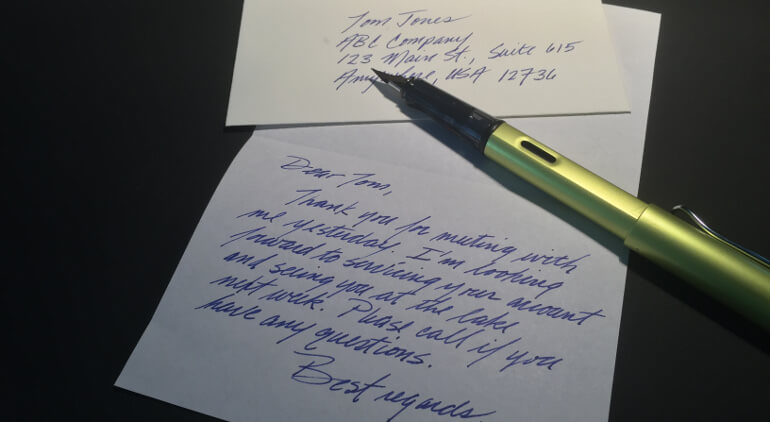 Tom Jones
ABC Company
123 Main St., Suite 615
Anywhere, USA 12736
Dear Tom,
Thank you for meeting with
me yesterday. I'm looking
forward to servicing your account
and seeing you at the lake
next week. Please call if you
have any questions.
Best regards,